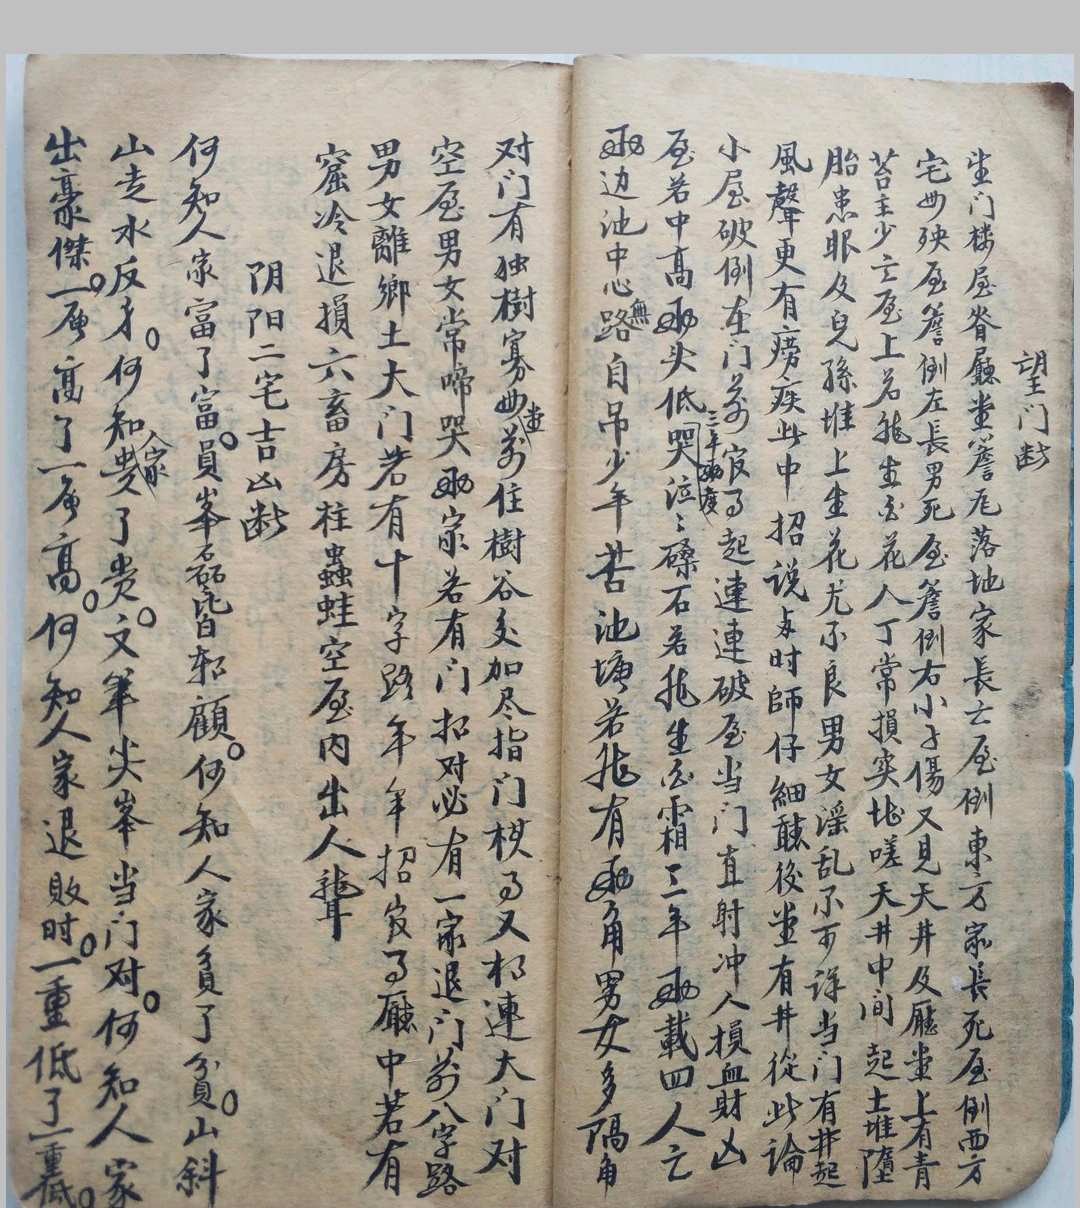 望门断
生门楼屋脊廳堂簷尾落地家長亡屋倒東方家長死屋倒西方
宅母殃屋簷倒左長男死屋簷倒右小子傷又見天井及廳堂上有青
苔主少亡屋上若生白花人丁常損突地嗟天井中間起土堆墮
胎患眼及兒孫堆上生花尤不良男女淫乱不可詳当门有井起
風聲更有痨疾此中招说与时師仔細聽後堂有井從此論
小屋破倒在门前官司起連連破屋当门直射冲人損血財凶
屋若中高两头低哭泣三年两度磉石若生白霜三年两載四人亡
两边池中心路無自吊少年苦池塘若有两角男女多隔角
对门有独樹寡母堂前住樹谷加尽指门棋司又相連大门对
空屋男女常啼哭两家若有门招对必有一家退门前八字路
男女離鄉土大门若有十字路年年招官司廳中若有
窟冷退損六畜房柱蟲蛀空屋内出人聾
阴阳二宅吉凶断
何知人家富了富。員峯磊皆相顧。何知人家貧了貧。山斜
山走水反身。何知人家贵了贵。文筆尖峯当门对。何知人家
出豪傑。一層高了一層高。何知人家退敗时。一重低了一重低。